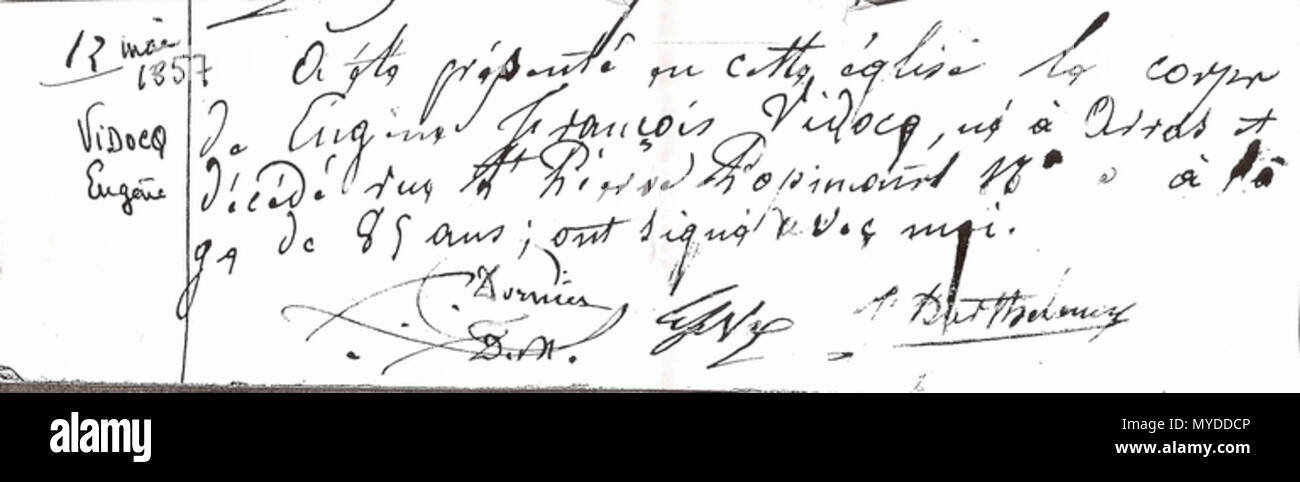 12 mai
1857
VIDOCQ
Eugène
A été présenté en cette église le corps
de Eugène François Vidocq, né à Arras et
décédé rue St Pierre Popincourt 18 à l'â
ge de 85 ans; ont signé avec moi.
Dornier
Barthelemy
alamy
a
alamy
Image ID: MYDDCP
www.alamy.com